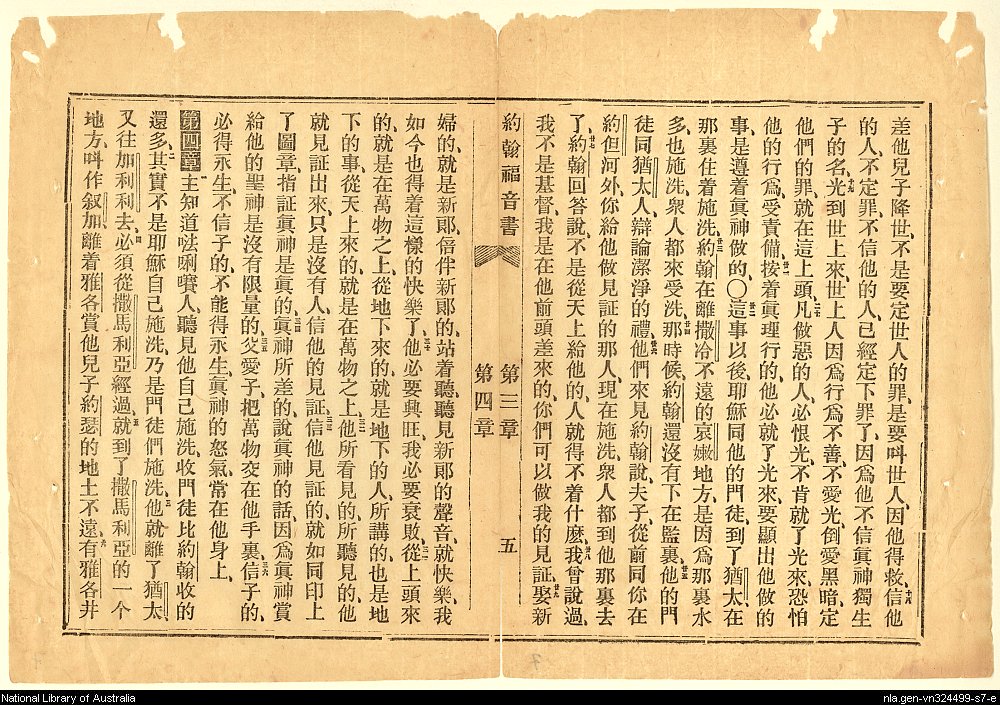 差他兒子降世、不是要定世人的罪、是要叫世人、因他得救、十八信他
的人、不定罪、不信他的人、已經定下罪了、因爲他不信眞神獨生
子的名、十九光到世上來、世上人因爲行爲不善、不愛光、倒愛黑暗、定
他們的罪、就在這上頭、二十凡做惡的人、必恨光、不肯就了光來、恐怕
他的行爲、受責備、廿一按着眞理行的、他必就了光來、要顯出他做的
事、是遵着眞神做的、〇廿二這事以後、耶穌同他的門徒、到了猶太、在
那裏住着施洗、廿三約翰在離撒冷不遠的哀嫩地方、是因爲那裏水
多、也施洗、衆人都來受洗、廿四那時候約翰還沒有下在監裏、廿五他的門
徒、同猶太人、辯論潔淨的禮、廿六他們來見約翰說、夫子、從前同你在
約但河外、你給他做見証的那人、現在施洗、衆人都到他那裏去
了、廿七約翰回答說、不是從天上給他的、人就得不着什麽、廿八我曾說過、
我不是基督、我是在他前頭差來的、你們可以做我的見証、廿九娶新
約翰福音書
第三章
第四章
五
婦的、就是新郎、偣伴新郎的、站着聽、聽見新郎的聲音、就快樂、我
如今也得着這樣的快樂了、三十他必要興旺、我必要衰敗、三一從上頭來
的、就是在萬物之上、從地下來的、就是地下的人、所講的也是地
下的事、從天上來的、就是在萬物之上、三二他所看見的所聽見的、他
就見証出來、只是沒有人信他的見証、三三信他見証的、就如同印上
了圖章、指証眞神是眞的、三四眞神所差的、說眞神的話、因爲眞神賞
給他的聖神、是沒有限量的、三五父愛子、把萬物交在他手裏、三六信子的、
必得永生、不信子的、不能得永生、眞神的怒氣、常在他身上、
第四章 一主知道𠵽唎賽人、聽見他自己施洗、收門徒比約翰收的
還多、二其實不是耶穌自己施洗、乃是門徒們施洗、三他就離了猶太
又往加利利去、四必須從撒馬利亞經過、五就到了撒馬利亞的一个
地方、叫作叙加、離着雅各賞他兒子約瑟的地土不遠、六有雅各井
National Library of Australia
nla.gen-vn324499-s7-e